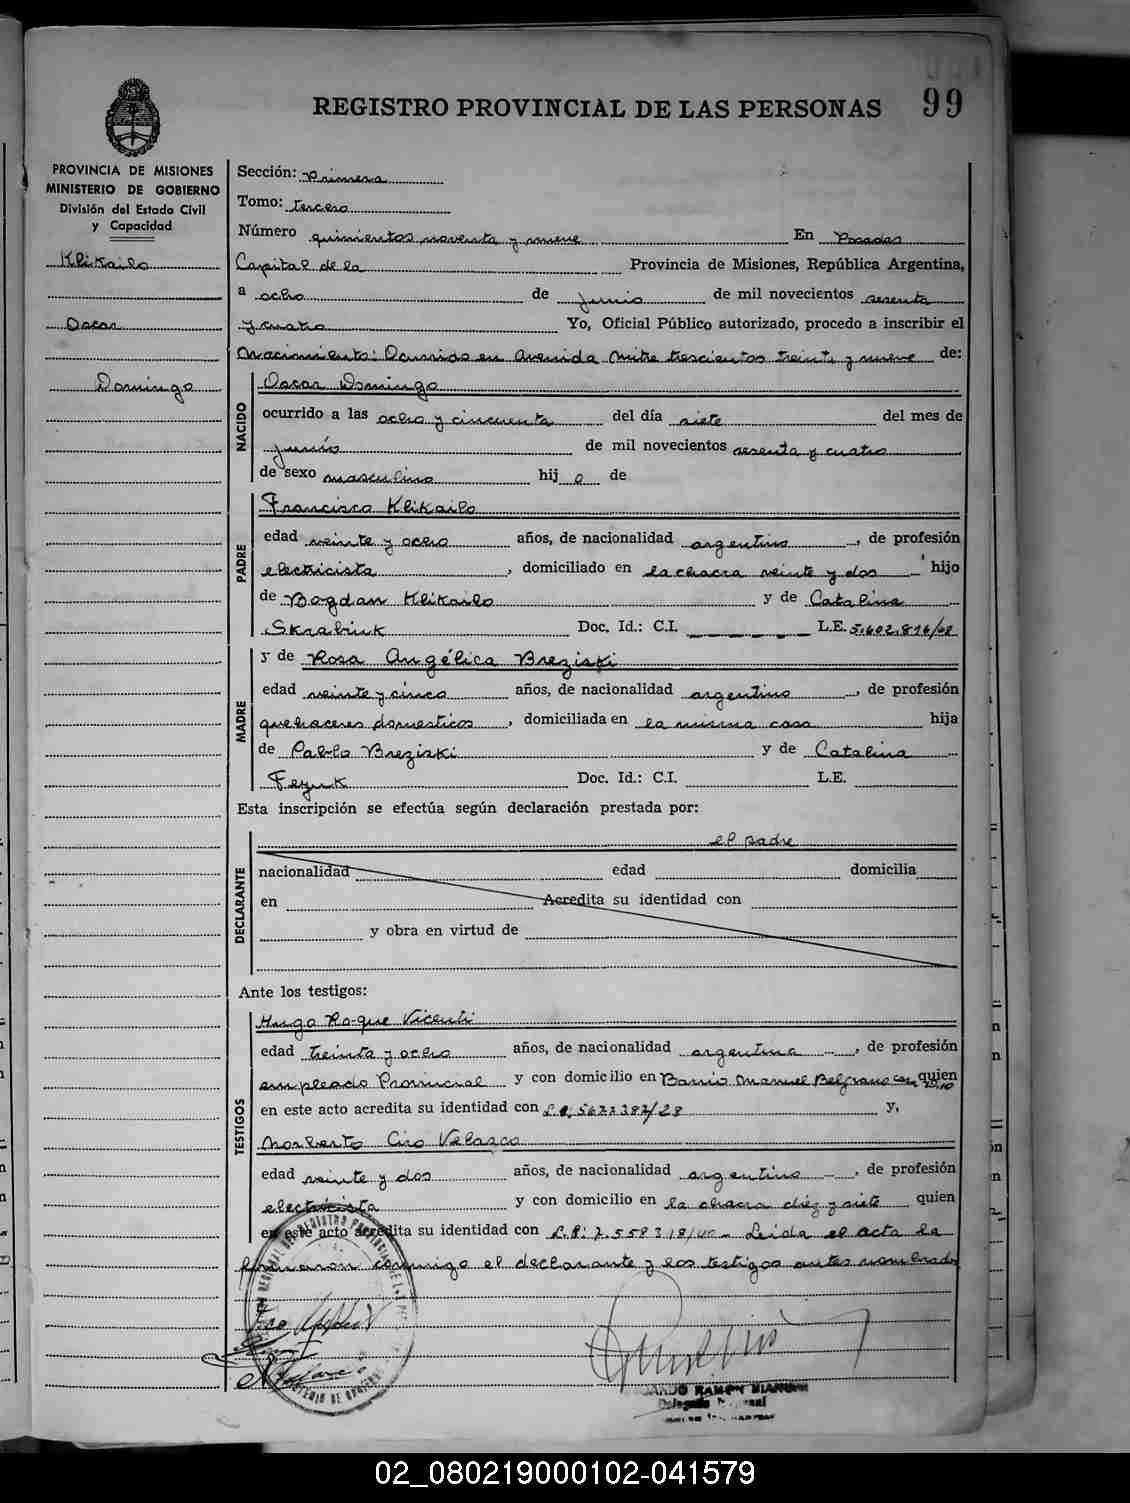 REGISTRO PROVINCIAL DE LAS PERSONAS 99
PROVINCIA DE MISIONES
MINISTERIO DE GOBIERNO
División del Estado Civil
y Capacidad
Klikailo
Oscar
Domingo
Sección: Primera
Tomo: tercero
Número quinientos noventa y nueve En Posadas
Capital de la Provincia de Misiones, República Argentina,
a ocho de junio de mil novecientos sesenta
y cuatro Yo, Oficial Público autorizado, procedo a inscribir el
Nacimiento: Ocurrido en Avenida Mitre trescientos treinta y nueve de:
NACIDO
Oscar Domingo
ocurrido a las ocho y cincuenta del día siete del mes de
junio de mil novecientos sesenta y cuatro
de sexo masculino hij o de
PADRE
Francisco Klikailo
edad veinte y ocho años, de nacionalidad argentino, de profesión
electricista, domiciliado en la chacra veinte y dos hijo
de Bogdan Klikailo y de Catalina
Skrabiuk Doc. Id.: C.I. L.E. 5.602.816/08
MADRE
y de Rosa Angélica Breziski
edad veinte y cinco años, de nacionalidad argentino, de profesión
quehaceres domesticos, domiciliada en la misma casa hija
de Pablo Breziski y de Catalina
Feyuk Doc. Id.: C.I. L.E.
Esta inscripción se efectúa según declaración prestada por:
DECLARANTE
el padre
nacionalidad edad domicilia
en Acredita su identidad con
y obra en virtud de
Ante los testigos:
TESTIGOS
Hugo Roque Vicenti
edad treinta y ocho años, de nacionalidad argentina, de profesión
empleado Provincial y con domicilio en Barrio Manuel Belgrano quien
en este acto acredita su identidad con y,
Norberto Ciro Velazco
edad veinte y dos años, de nacionalidad argentino, de profesión
electricista y con domicilio en la chacra diéz y siete quien
en este acto acredita su identidad con Leida el acta la
firmaron conmigo el declarante y los testigos antes nombrados
RAMON
02_080219000102-041579